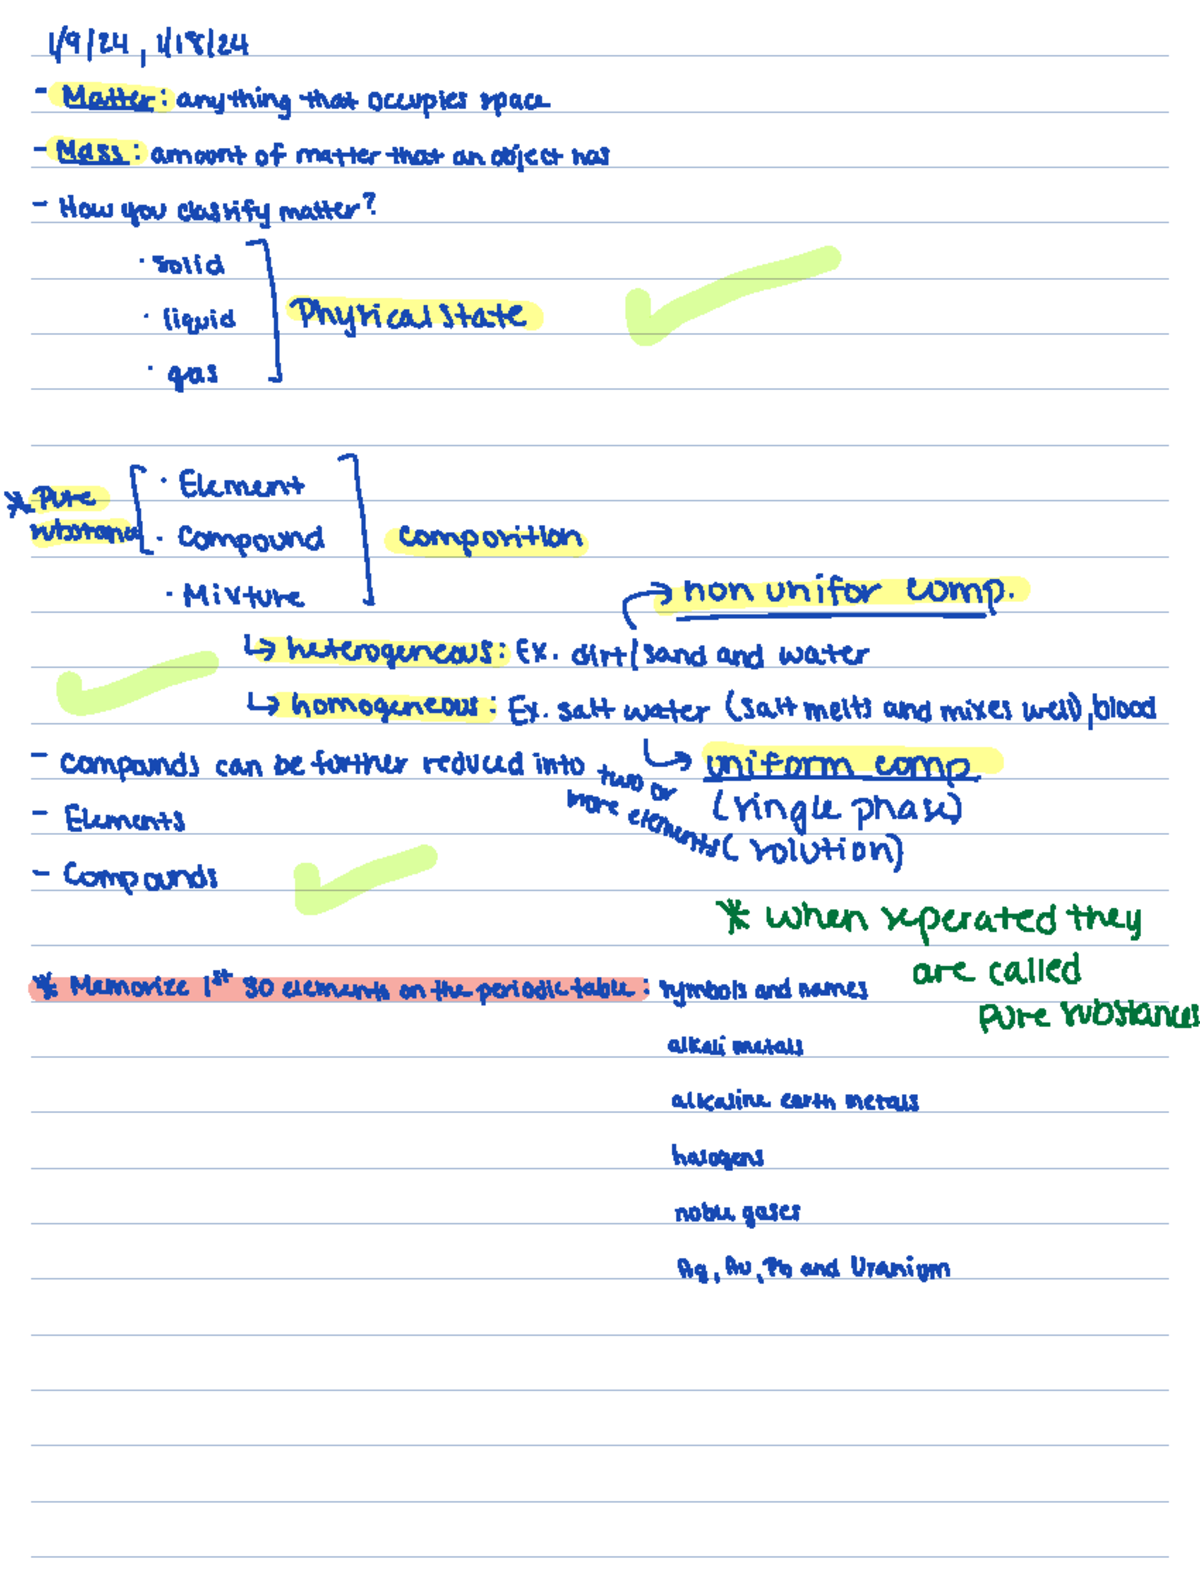 1/9/24, 1/18/24
- Matter: anything that occupies space
- Mass: amount of matter that an object has
- How you classify matter?
· solid
· liquid
· gas
Physical state
* Pure substance
· Element
· Compound
· Mixture
composition
→ non unifor comp.
↳ heterogeneous: Ex. dirt/sand and water
↳ homogeneous: Ex. salt water (salt melts and mixes well), blood
↳ uniform comp.
(single phase)
(solution)
- compounds can be further reduced into two or more elements
- Elements
- Compounds
* when seperated they
are called
pure substances
* Memorize 1st 30 elements on the periodic table: symbols and names
alkali metals
alkaline earth metals
halogens
noble gases
Ag, Au, Pb and Uranium